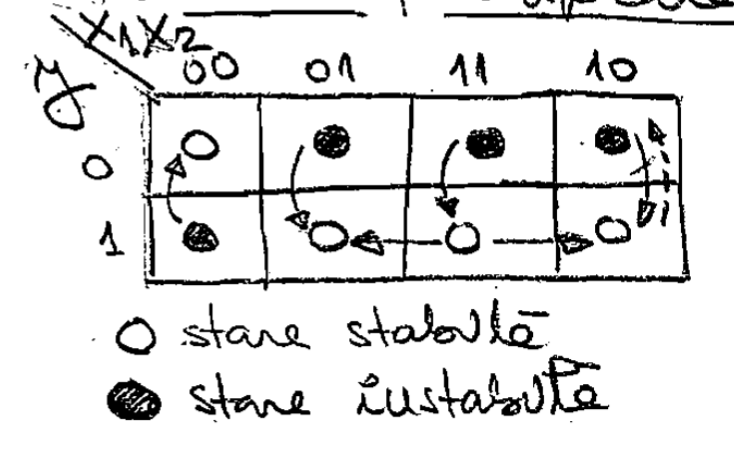 X1X2
y 00 01 11 10
0
1
stare stabilă
stare instabilă